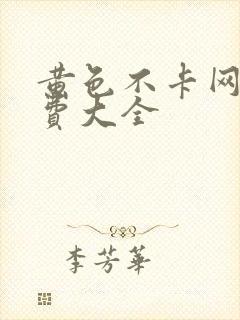 黄色不卡网
費大全
李芳華